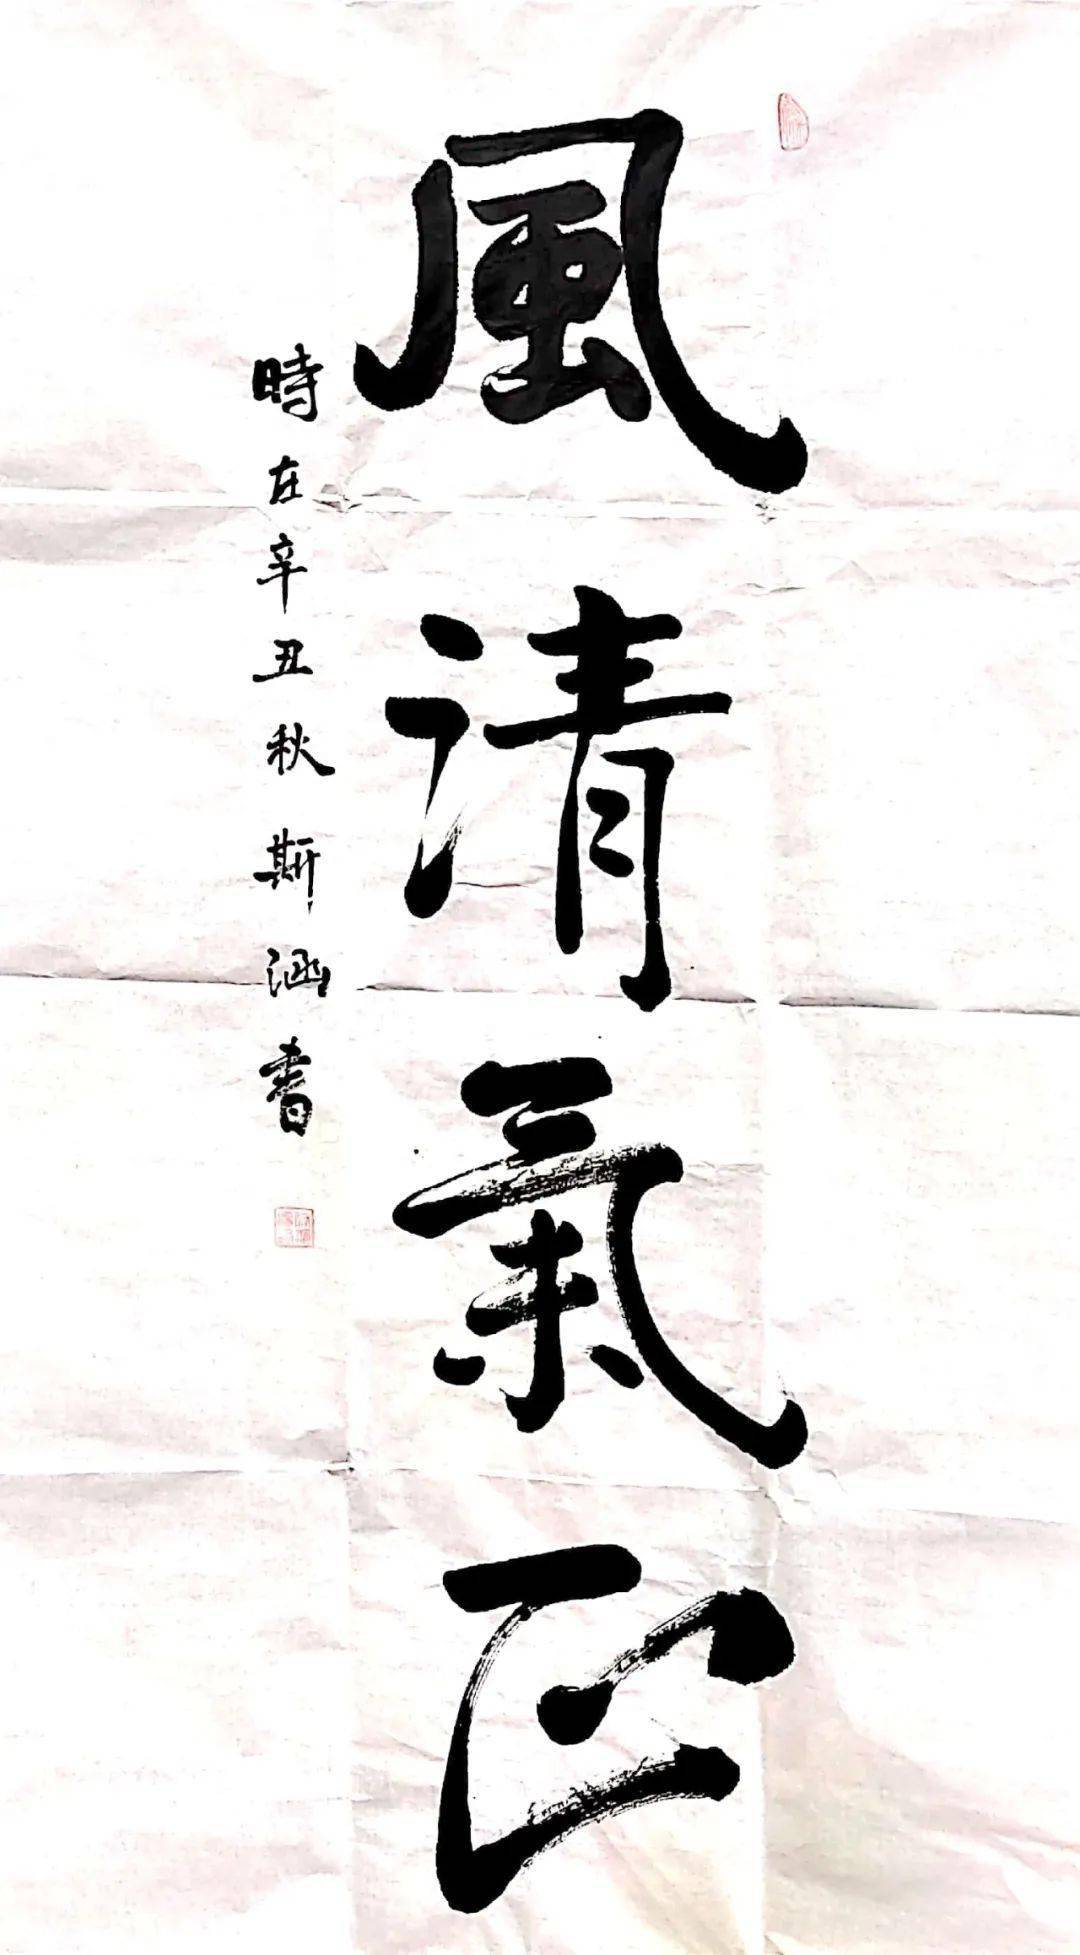 風清氣正
時在辛丑秋斯涵書